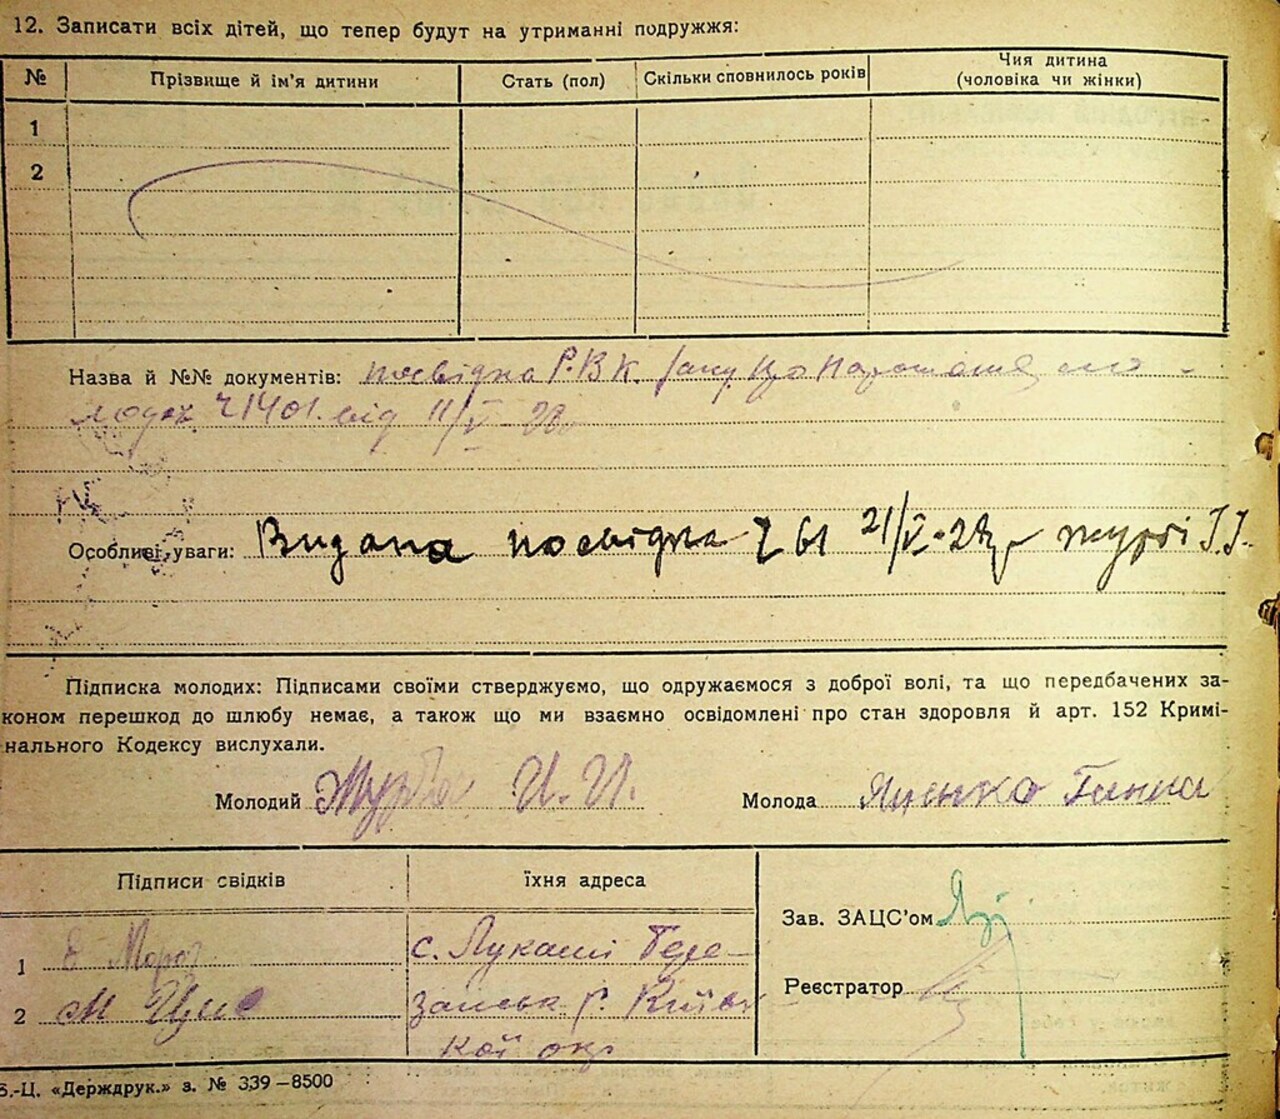 12. Записати всіх дітей, що тепер будут на утриманні подружжя:
№ Прізвище й ім'я дитини Стать (пол) Скільки сповнилось років Чия дитина
(чоловіка чи жінки)
1
2
Назва й №№ документів: посвідка Р.В.К.
від 11/V 28
Особливі уваги: Видана посвідка 61 21/V-28р Журбі І.І.
Підписка молодих: Підписами своїми стверджуємо, що одружаємося з доброї волі, та що передбачених за-
коном перешкод до шлюбу немає, а також що ми взаємно освідомлені про стан здоровля й арт. 152 Кримі-
нального Кодексу вислухали.
Молодий Журба И.И. Молода Яценко Ганна
Підписи свідків їхня адреса
Зав. ЗАЦС'ом
1 Мороз с. Лукаші Бере-
Реєстратор
2 М занськ р. Київ
кої окр
Б.-Ц. «Держдрук.» з. № 339—8500